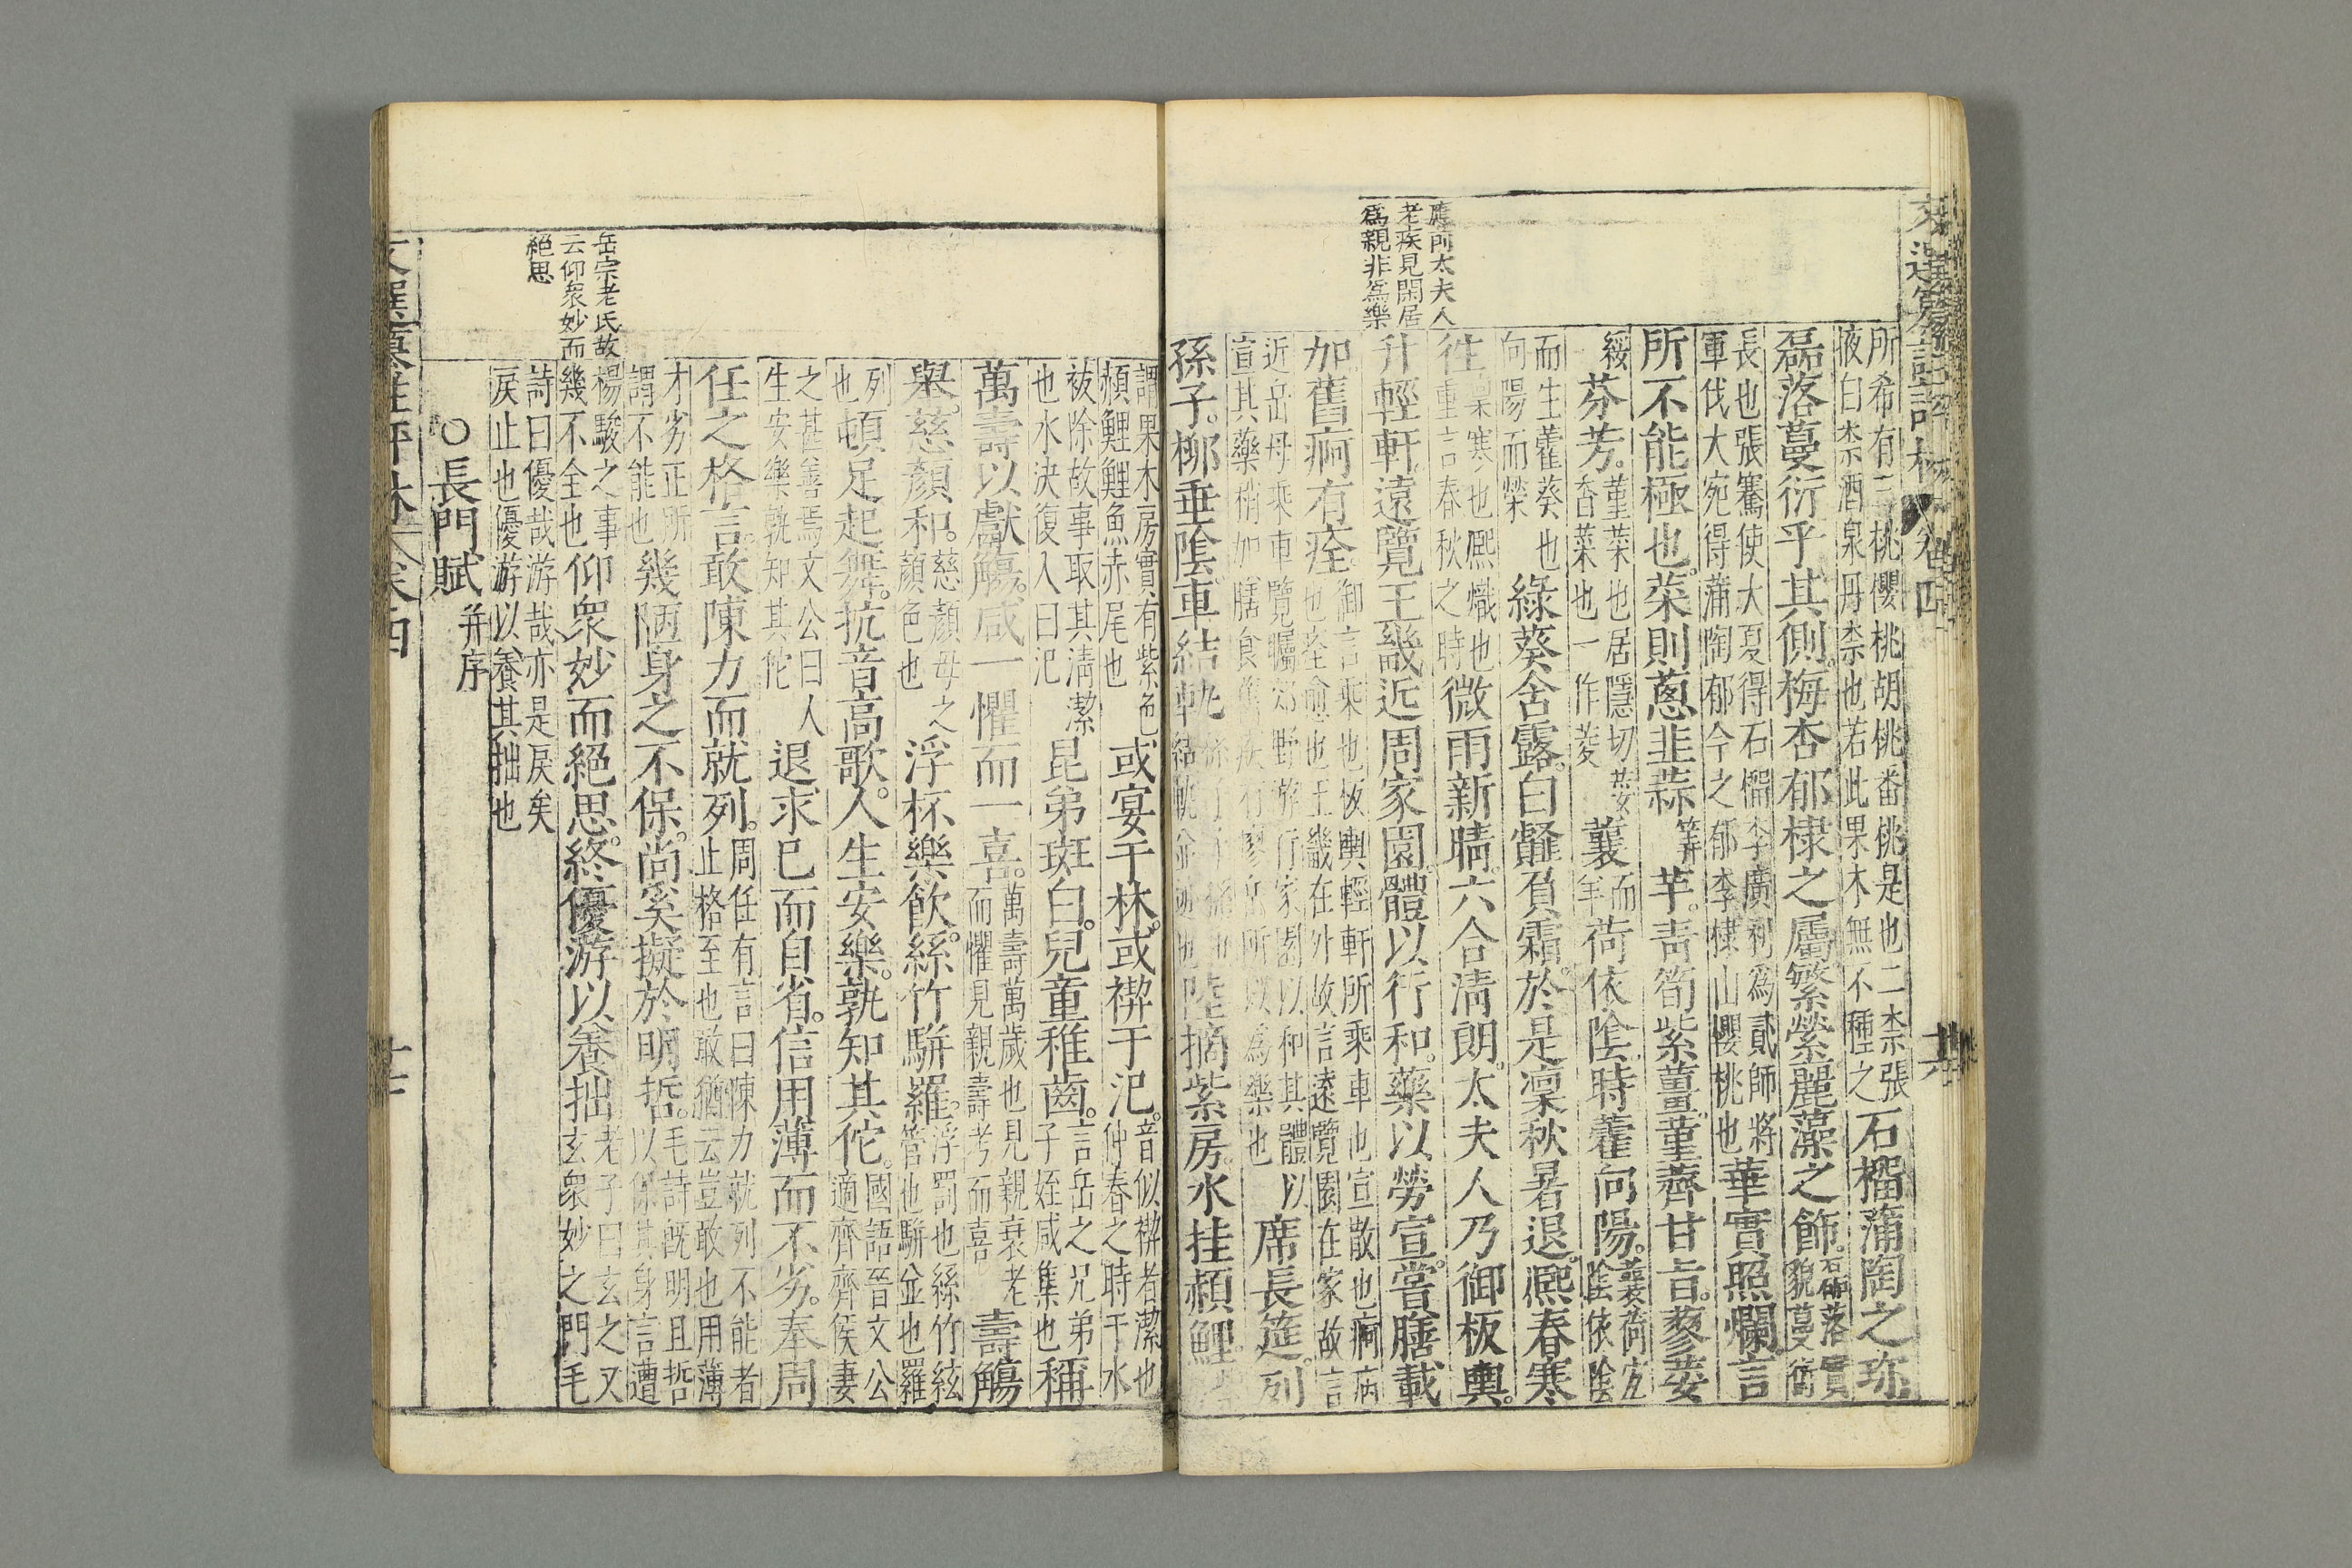 文選纂註評林 卷四 十六
應前太夫人
老疾見閑居
為親非為樂
所希有三桃櫻桃胡桃畨桃是也二柰張
液白柰酒泉丹柰也若此果木無不種之石榴蒲陶之珎
磊落蔓衍乎其側。梅杏郁棣之屬。繁榮麗藻之飾。石榴落實
貌蔓衍
長也張騫使大夏得石榴李廣利為貳師將
軍伐大宛得蒲陶郁今之郁李棣山櫻桃也華實照爛言
所不能極也。菜則蔥韭蒜筭芋。靑筍紫薑。菫薺甘旨。蓼荾
綏芬芳。菫菜也居隱切荾
香菜也一作菱蘘而羊荷依陰。時藿向陽。蘘荷宜
陰依陰
而生藿葵也
向陽而榮綠葵含露。白薤負霜。於是凜秋暑退。熈春寒
徃凜寒也熈熾也
重言春秋之時微雨新晴。六合清朗。太夫人乃御板輿。
升輕軒遠覽王畿近周家園。體以行和。藥以勞宣。嘗膳載
加舊痾有痊。御言乘也板輿輕軒所乘車也宣散也痾病
也痊愈也王畿在外故言遠覽園在家故言
近岳母乘車覽矚郊野游行家園以和其體以
宣其藥稍加膳食舊疾有瘳岳所以為樂也席長筵。列
孫子。柳垂陰。車結軌
結軌並迹也陸摘紫房。水挂赬鯉。
岳宗老氏故
云仰衆妙而
絕思
謂果木房實有紫色
赬鯉鯉魚赤尾也或宴于林。或禊于汜。音似禊者潔也
仲春之時于水
祓除故事取其清潔
也水決復入曰汜昆弟斑白。兒童稚齒。言岳之兄弟
子姪咸集也稱
萬壽以獻觴。咸一懼而一喜。萬壽萬歲也見親衰老
而懼見親壽考而喜壽觴
舉。慈顏和。慈顏母之
顏色也浮杯樂飲。絲竹駢羅。浮罰也絲竹絃
管也駢並也羅
列
也頓足起舞。抗音高歌。人生安樂。孰知其佗。國語晉文公
適齊齊侯妻
之甚善焉文公曰人
生安樂孰知其佗退求巳而自省。信用薄而不劣。奉周
任之格言。敢陳力而就列。周任有言曰陳力就列不能者
止格至也敢猶云豈敢也用薄
才劣正所
謂不能也幾陋身之不保。尚奚擬於明哲。毛詩旣明且哲
以保其身言遭
楊駿之事
幾不全也仰衆妙而絕思。終優游以養拙。老子曰玄之又
玄衆妙之門毛
詩曰優哉游哉亦是戾矣
戾止也優游以養其拙也
○長門賦 并序
文選纂註評林 卷四